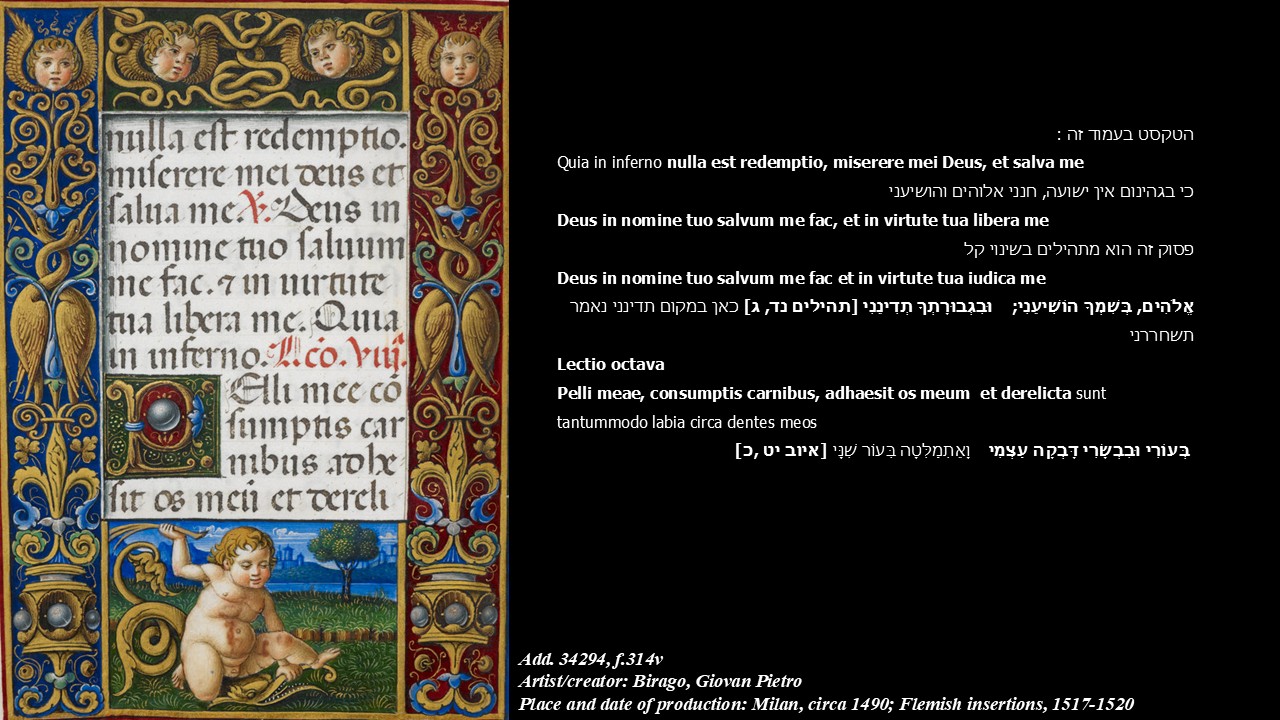 nulla est redemptio.
miserere mei deus et
salua me. V. Deus in
nomine tuo saluum
me fac. ⁊ in uirtute
tua libera me. Quia
in inferno. Lc̄o. viij.
Elli mee cō
sumptis car
nibus adhe
sit os meū et dereli
הטקסט בעמוד זה :
Quia in inferno nulla est redemptio, miserere mei Deus, et salva me
כי בגהינום איך ישועה, חנני אלוהים והושיעני
Deus in nomine tuo salvum me fac, et in virtute tua libera me
פסוק זה הוא מתהילים בשינוי קל
Deus in nomine tuo salvum me fac et in virtute tua iudica me
אֱלֹהִים, בְּשִׁמְךָ הוֹשִׁיעֵנִי; וּבִגְבוּרָתְךָ תְדִינֵנִי [תהילים נד, ג] כאן במקום תדינני נאמר
תשחררני
Lectio octava
Pelli meae, consumptis carnibus, adhaesit os meum et derelicta sunt
tantummodo labia circa dentes meos
בְּעוֹרִי וּבִבְשָׂרִי דָּבְקָה עַצְמִי וָאֶתְמַלְּטָה בְּעוֹר שִׁנָּי [איוב יט ,כ]
Add. 34294, f.314v
Artist/creator: Birago, Giovan Pietro
Place and date of production: Milan, circa 1490; Flemish insertions, 1517-1520